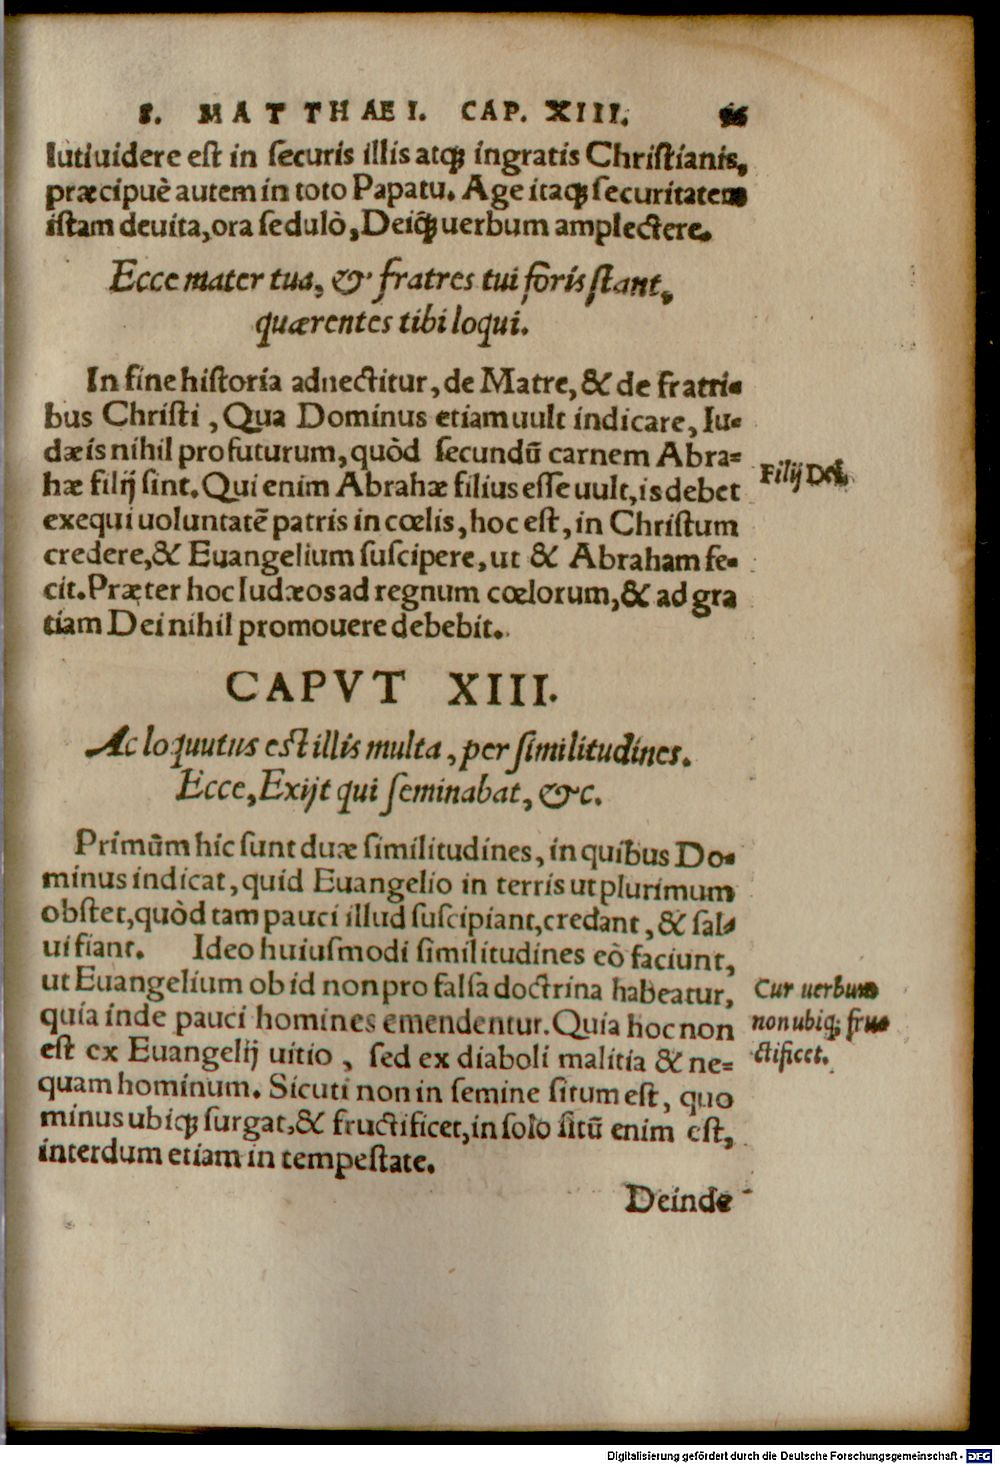 S. MATTHAEI. CAP. XIII. 26
luti uidere est in securis illis atq; ingratis Christianis,
præcipuè autem in toto Papatu. Age itaq; securitatem
istam deuita, ora sedulò, Deiq; uerbum amplectere.
Ecce mater tua, & fratres tui foris stant,
quærentes tibi loqui.
In fine historia adnectitur, de Matre, & de fratri-
bus Christi, Qua Dominus etiam uult indicare, Iu-
dæis nihil profuturum, quòd secundū carnem Abra-
hæ filij sint. Qui enim Abrahæ filius esse uult, is debet
Filij Dei.
exequi uoluntatē patris in cœlis, hoc est, in Christum
credere, & Euangelium suscipere, ut & Abraham fe-
cit. Præter hoc Iudæos ad regnum cœlorum, & ad gra
tiam Dei nihil promouere debebit.
CAPVT XIII.
Ac loquutus est illis multa, per similitudines.
Ecce, Exijt qui seminabat, &c.
Primūm hic sunt duæ similitudines, in quibus Do-
minus indicat, quid Euangelio in terris ut plurimum
obstet, quòd tam pauci illud suscipiant, credant, & sal-
ui fiant. Ideo huiusmodi similitudines eò faciunt,
ut Euangelium ob id non pro falsa doctrina habeatur,
quia inde pauci homines emendentur. Quia hoc non
est ex Euangelij uitio, sed ex diaboli malitia & ne-
quam hominum. Sicuti non in semine situm est, quo
minus ubiq; surgat, & fructificet, in solo sitū enim est,
interdum etiam in tempestate.
Cur uerbum
non ubiq; fru-
ctificet.
Deinde
Digitalisierung gefördert durch die Deutsche Forschungsgemeinschaft - DFG